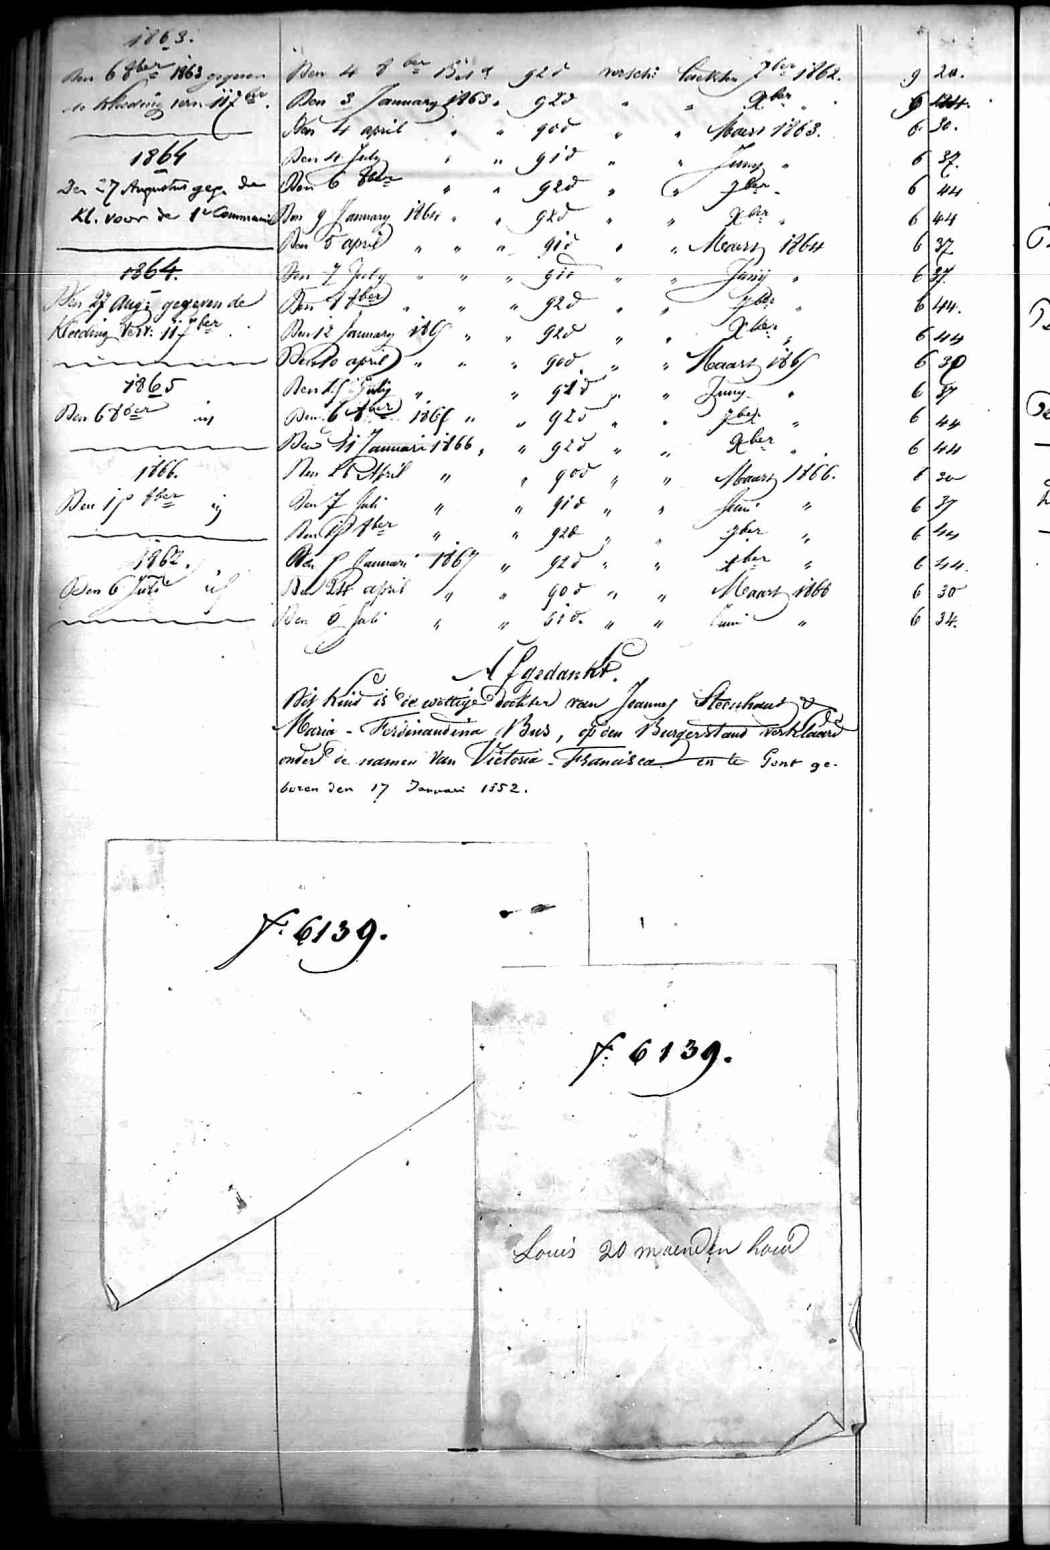 1863.
Den 6 8ber 1863 gegeven
de kleeding vern. 11 7ber.
1864
Den 27 Augustus geg. de
kl. voor de 1e Communie
1864.
Den 27 Aug: gegeven de
kleeding verv: 11 7ber
1865
Den 6 8ber
1866.
Den 8ber
1867.
Den 6 Juli
Den 4 8ber 92 d versch: 7ber 1862. 9 20.
Den 3 January 1863 " 92 d " " Xber "
Den 4 april " " 90 d " " Maart 1863. 6 30.
Den 4 July " " 91 d " " Juny " 6 37.
Den 6 8ber " " 92 d " " 7ber " 6 44
Den 9 January 1864 " " 92 d " " Xber " 6 44
Den 5 april " " " 91 d " " Maart 1864 6 37
Den 7 July " " " 91 d " " Juny " 6 37.
Den 8ber " " 92 d " " 7ber " 6 44.
Den 12 January 1865 " " 92 d " " Xber " 6 44
Den 10 april " " " 90 d " " Maart 1865 6 30
Den July " " 91 d " " Juny " 6 37
Den 6 8ber 1865 " " 92 d " " 7ber " 6 44
Den 11 Januari 1866 " " 92 d " " Xber " 6 44
Den April " " 90 d " " Maart 1866. 6 30
Den 7 Juli " " 91 d " " Juni " 6 37
Den 8ber " " 92 d " " 7ber " 6 44
Den Januari 1867 " 92 d " " Xber " 6 44.
Den 24 april " " 90 d " " Maart 6 30
Den 6 Juli " " " " Juni " 6 34.
Afgedankt.
Dit kind is de wettige dochter van Joannes Steenhaut &
Maria - Ferdinandina Bus, op den Burgerstand verklaard
onder de namen van Victoria - Francisca en te Gent ge-
boren den 17 Januari 1852.
f. 6139.
f. 6139.
Louis 20 maenden houd